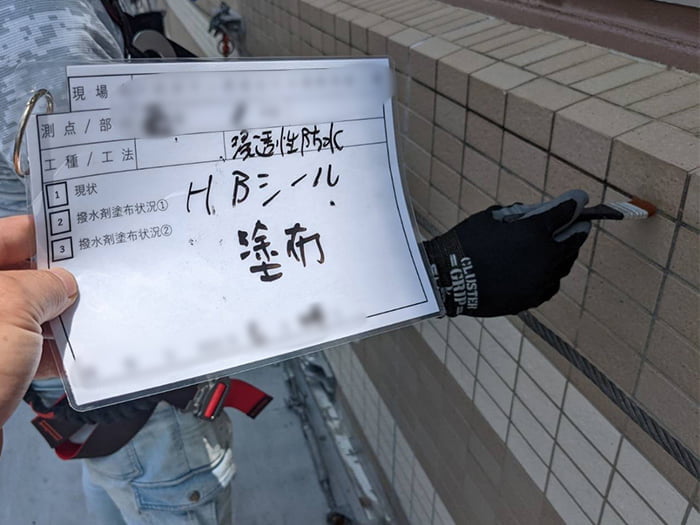 現場
測点/部
工種/工法 浸透性防水
1 現状
2 撥水剤塗布状況①
3 撥水剤塗布状況②
HBシール
塗布
CLUSTER
GRIP